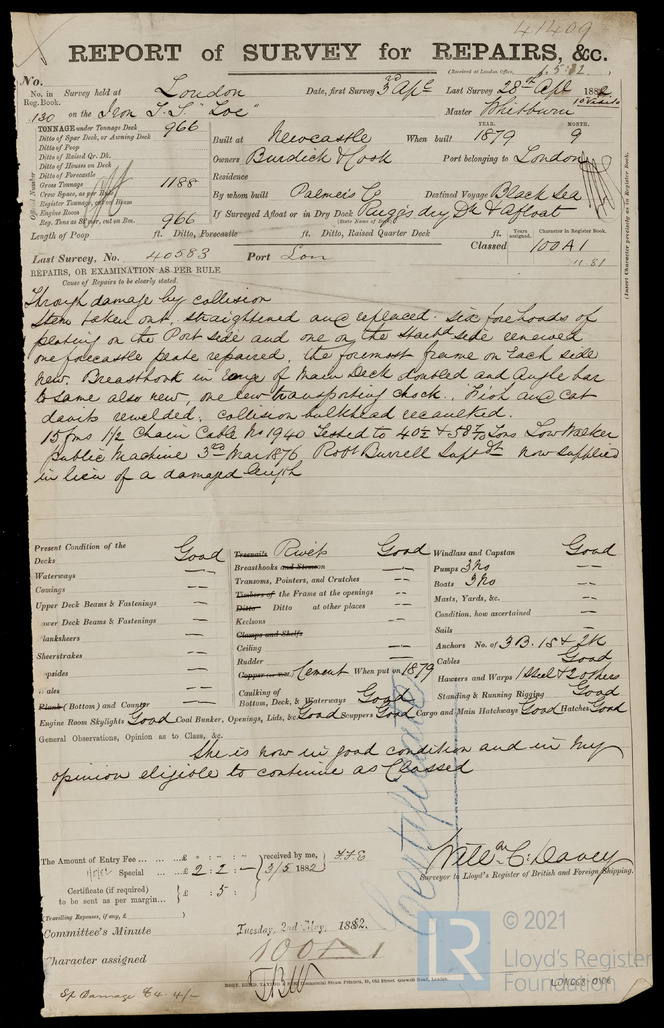 41409
REPORT of SURVEY for REPAIRS, &c.
(Received at London Office, 1.5.82)
No.
No. in Reg. Book. Survey held at London Date, first Survey 3rd Apl Last Survey 28th Apl 1882
130 on the Iron S.S. "Zoe" Master Whitburn 10 Visits
TONNAGE under Tonnage Deck 966
Ditto of Spar Deck, or Awning Deck
Ditto of Poop
Ditto of Raised Qr. Dk.
Ditto of Houses on Deck
Ditto of Forecastle
Gross Tonnage 1188
Crew Space, as per Rule
Register Tonnage, cut on Beam
Engine Room
Reg. Tons as Str. per, cut on Bm. 966
Official Number
Built at Newcastle When built YEAR. 1879 MONTH. 9
Owners Burdick & Cook Port belonging to London
Residence
By whom built Palmers Co Destined Voyage Black Sea
If Surveyed Afloat or in Dry Dock Ruggs dry Dk & afloat
(State Name of Dock.)
Length of Poop ft. Ditto, Forecastle ft. Ditto, Raised Quarter Deck ft.
Years assigned. Character in Register Book.
Last Survey, No. 40583 Port Lon Classed 100A1
11.81
(Insert Character precisely as in Register Book.)
REPAIRS, OR EXAMINATION AS PER RULE
Cause of Repairs to be clearly stated.
Through damage by collision
Stem taken out, straightened and replaced. six forehoods of
plating on the Port side and one on the Starbd side renewed
one forecastle plate repaired, the foremost frame on each side
new. Breasthook in range of Main Deck doubled and Angle bar
to same also new, one new transporting chock. Fish and Cat
davits rewelded. Collision bulkhead recaulked.
15 fms 1 1/2 Chain Cable No 1940 Tested to 40 1/2 & 58 7/10 Tons Low Walker
public Machine 3rd Mar 1876 Robt Burrell Supt dt now supplied
in lieu of a damaged length
Present Condition of the
Decks Good
Waterways --
Comings --
Upper Deck Beams & Fastenings --
Lower Deck Beams & Fastenings --
Planksheers --
Sheerstrakes --
Topsides --
Wales --
Plank (Bottom) and Counter --
Treenails Rivets Good
Breasthooks and Stemson --
Transoms, Pointers, and Crutches --
Timbers of the Frame at the openings --
Ditto Ditto at other places --
Keelsons --
Clamps and Shelfs
Ceiling --
Rudder --
Copper (or met) Cement When put on 1879
Caulking of Bottom, Deck, & Waterways Good
Windlass and Capstan Good
Pumps 3 No --
Boats 3 No --
Masts, Yards, &c. --
Condition, how ascertained --
Sails --
Anchors No. of 3B. 1S & 2K
Cables Good
Hawsers and Warps 1 Steel & 2 others
Standing & Running Rigging Good
Engine Room Skylights Good Coal Bunker, Openings, Lids, &c. Good Scuppers Good Cargo and Main Hatchways Good Hatches Good
General Observations, Opinion as to Class, &c.
She is now in good condition and in my
opinion eligible to continue as Classed
Certificate
The Amount of Entry Fee ... ... £ " : " : " received by me, F.F.E
Special ... £ 2 : 2 : - 3/5 1882
Certificate (if required) to be sent as per margin... £ : 5 :
(Travelling Expenses, if any, £ )
Willm C. Davey
Surveyor to Lloyd's Register of British and Foreign Shipping.
Committee's Minute Tuesday, 2nd May, 1882.
Character assigned 100A1
Sp Damage £4.4/-
LON668-0106
© 2021
LR
Lloyd's Register
Foundation